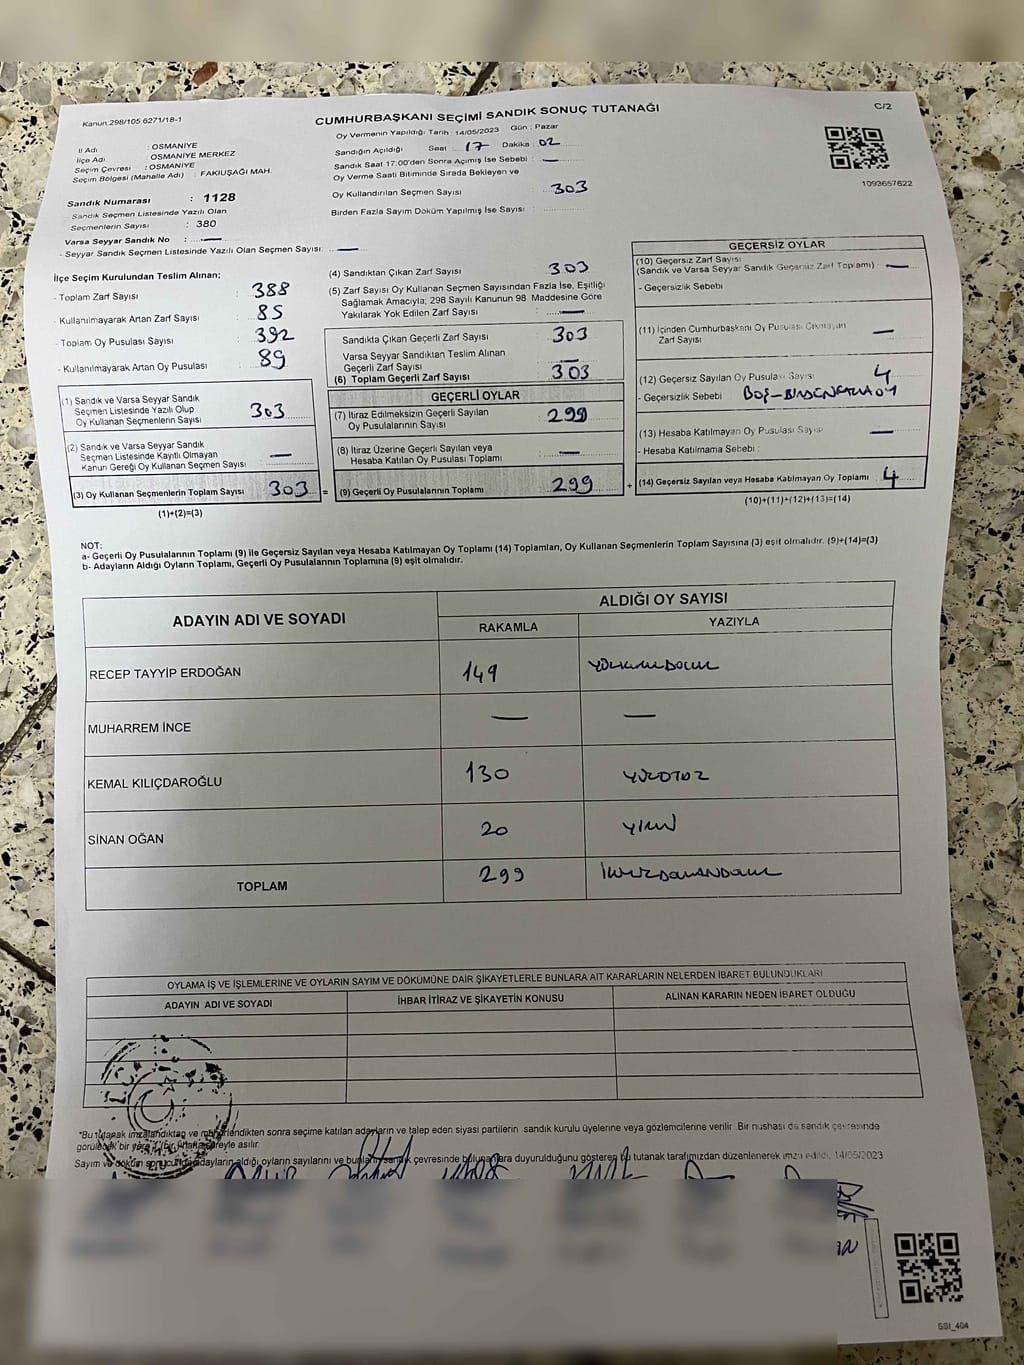 Kanun:298/105 6271/18-1
CUMHURBAŞKANI SEÇİMİ SANDIK SONUÇ TUTANAĞI
C/2
Oy Vermenin Yapıldığı Tarih 14/05/2023 Gün : Pazar
İl Adı : OSMANİYE
İlçe Adı : OSMANİYE MERKEZ
Seçim Çevresi : OSMANİYE
Seçim Bölgesi (Mahalle Adı) : FAKIUŞAĞI MAH.
Sandık Numarası : 1128
Sandık Seçmen Listesinde Yazılı Olan
Seçmenlerin Sayısı : 380
Varsa Seyyar Sandık No : —
- Seyyar Sandık Seçmen Listesinde Yazılı Olan Seçmen Sayısı: —
Sandığın Açıldığı Saat 17 Dakika : 02
Sandık Saat 17:00'den Sonra Açımış İse Sebebi : —
Oy Verme Saati Bitiminde Sırada Bekleyen ve
Oy Kullandırılan Seçmen Sayısı : 303
Birden Fazla Sayım Döküm Yapılmış İse Sayısı :
1093657622
İlçe Seçim Kurulundan Teslim Alınan;
- Toplam Zarf Sayısı : 388
- Kullanılmayarak Artan Zarf Sayısı : 85
- Toplam Oy Pusulası Sayısı : 392
- Kullanılmayarak Artan Oy Pusulası : 89
(1) Sandık ve Varsa Seyyar Sandık
Seçmen Listesinde Yazılı Olup
Oy Kullanan Seçmenlerin Sayısı 303
(2) Sandık ve Varsa Seyyar Sandık
Seçmen Listesinde Kayıtlı Olmayan
Kanun Gereği Oy Kullanan Seçmen Sayısı —
(3) Oy Kullanan Seçmenlerin Toplam Sayısı 303 =
(1)+(2)=(3)
(4) Sandıktan Çıkan Zarf Sayısı 303
(5) Zarf Sayısı Oy Kullanan Seçmen Sayısından Fazla İse, Eşitliği
Sağlamak Amacıyla; 298 Sayılı Kanunun 98. Maddesine Göre
Yakılarak Yok Edilen Zarf Sayısı : —
Sandıkta Çıkan Geçerli Zarf Sayısı 303
Varsa Seyyar Sandıktan Teslim Alınan
Geçerli Zarf Sayısı —
(6) Toplam Geçerli Zarf Sayısı 303
GEÇERLİ OYLAR
(7) İtiraz Edilmeksizin Geçerli Sayılan
Oy Pusulalarının Sayısı 299
(8) İtiraz Üzerine Geçerli Sayılan veya
Hesaba Katılan Oy Pusulası Toplamı —
(9) Geçerli Oy Pusulalarının Toplamı 299 +
GEÇERSİZ OYLAR
(10) Geçersiz Zarf Sayısı
(Sandık ve Varsa Seyyar Sandık Geçersiz Zarf Toplamı) —
- Geçersizlik Sebebi
(11) İçinden Cumhurbaşkanı Oy Pusulası Çıkmayan
Zarf Sayısı —
(12) Geçersiz Sayılan Oy Pusulası Sayısı 4
- Geçersizlik Sebebi
(13) Hesaba Katılmayan Oy Pusulası Sayısı —
- Hesaba Katılmama Sebebi :
(14) Geçersiz Sayılan veya Hesaba Katılmayan Oy Toplamı 4
(10)+(11)+(12)+(13)=(14)
NOT:
a- Geçerli Oy Pusulalarının Toplamı (9) ile Geçersiz Sayılan veya Hesaba Katılmayan Oy Toplamı (14) Toplamları, Oy Kullanan Seçmenlerin Toplam Sayısına (3) eşit olmalıdır. (9)+(14)=(3)
b- Adayların Aldığı Oyların Toplamı, Geçerli Oy Pusulalarının Toplamına (9) eşit olmalıdır.
ADAYIN ADI VE SOYADI
ALDIĞI OY SAYISI
RAKAMLA YAZIYLA
RECEP TAYYİP ERDOĞAN 149
MUHARREM İNCE — —
KEMAL KILIÇDAROĞLU 130 YÜZOTUZ
SİNAN OĞAN 20 YİRMİ
TOPLAM 299
OYLAMA İŞ VE İŞLEMLERİNE VE OYLARIN SAYIM VE DÖKÜMÜNE DAİR ŞİKAYETLERLE BUNLARA AİT KARARLARIN NELERDEN İBARET BULUNDUKLARI
ADAYIN ADI VE SOYADI İHBAR İTİRAZ VE ŞİKAYETİN KONUSU ALINAN KARARIN NEDEN İBARET OLDUĞU
*Bu tutanak imzalandıktan ve mühürlendikten sonra seçime katılan adayların ve talep eden siyasi partilerin sandık kurulu üyelerine veya gözlemcilerine verilir. Bir nushası da sandık çevresinde
görülecek bir yere
Sayım ve döküm sonucunda adayların aldığı oyların sayılarını ve bunların sandık çevresinde bulunanlara duyurulduğunu gösteren bu tutanak tarafımızdan düzenlenerek imza edildi. 14/05/2023
SSI_404